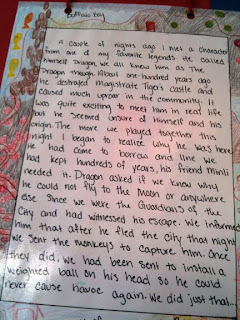 Buffalo Boy
A couple of nights ago I met a character
from one of my favorite legends. He called
himself Dragon, we all knew him as The
Dragon though. About one-hundred years ago
he destroyed Magistrate Tiger's castle and
caused much uproar in the community. It
was quite exciting to meet him in real life
but he seemed unsure of himself and his
origin. The more we played together this
night I began to realize why he was here.
He had come to borrow and line we
had kept hundreds of years, his friend Minli
needed it. Dragon asked if we knew why
he could not fly to the moon or anywhere
else. Since we were the Guardian's of the
City and had witnessed his escape. We informed
him that after he fled the city that night
we sent the monkeys to capture him. Once
they did, we had been sent to install a
weighted ball on his head so he could
never cause havoc again. We did just that...